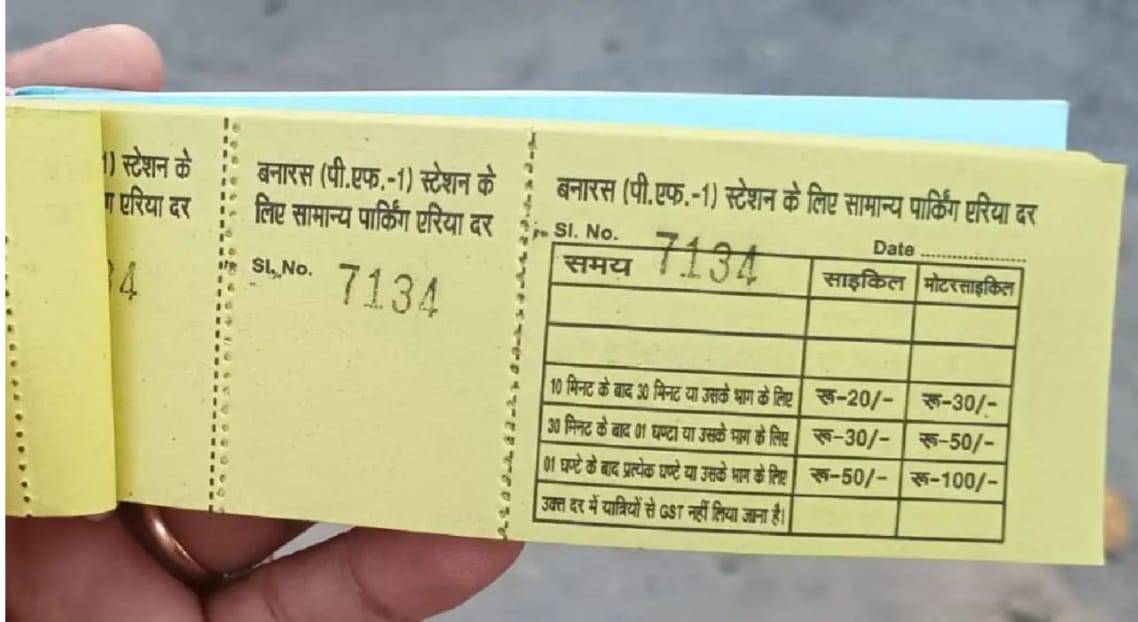 1) स्टेशन के
एरिया दर
4
बनारस (पी.एफ.-1) स्टेशन के
लिए सामान्य पार्किंग एरिया दर
Sl. No. 7134
बनारस (पी.एफ.-1) स्टेशन के लिए सामान्य पार्किंग एरिया दर
Sl. No. 7134 Date ....................
समय साइकिल मोटरसाइकिल
10 मिनट के बाद 30 मिनट या उसके भाग के लिए रू-20/- रू-30/-
30 मिनट के बाद 01 घण्टा या उसके भाग के लिए रू-30/- रू-50/-
01 घण्टे के बाद प्रत्येक घण्टे या उसके भाग के लिए रू-50/- रू-100/-
उक्त दर में यात्रियों से GST नहीं लिया जाना है।